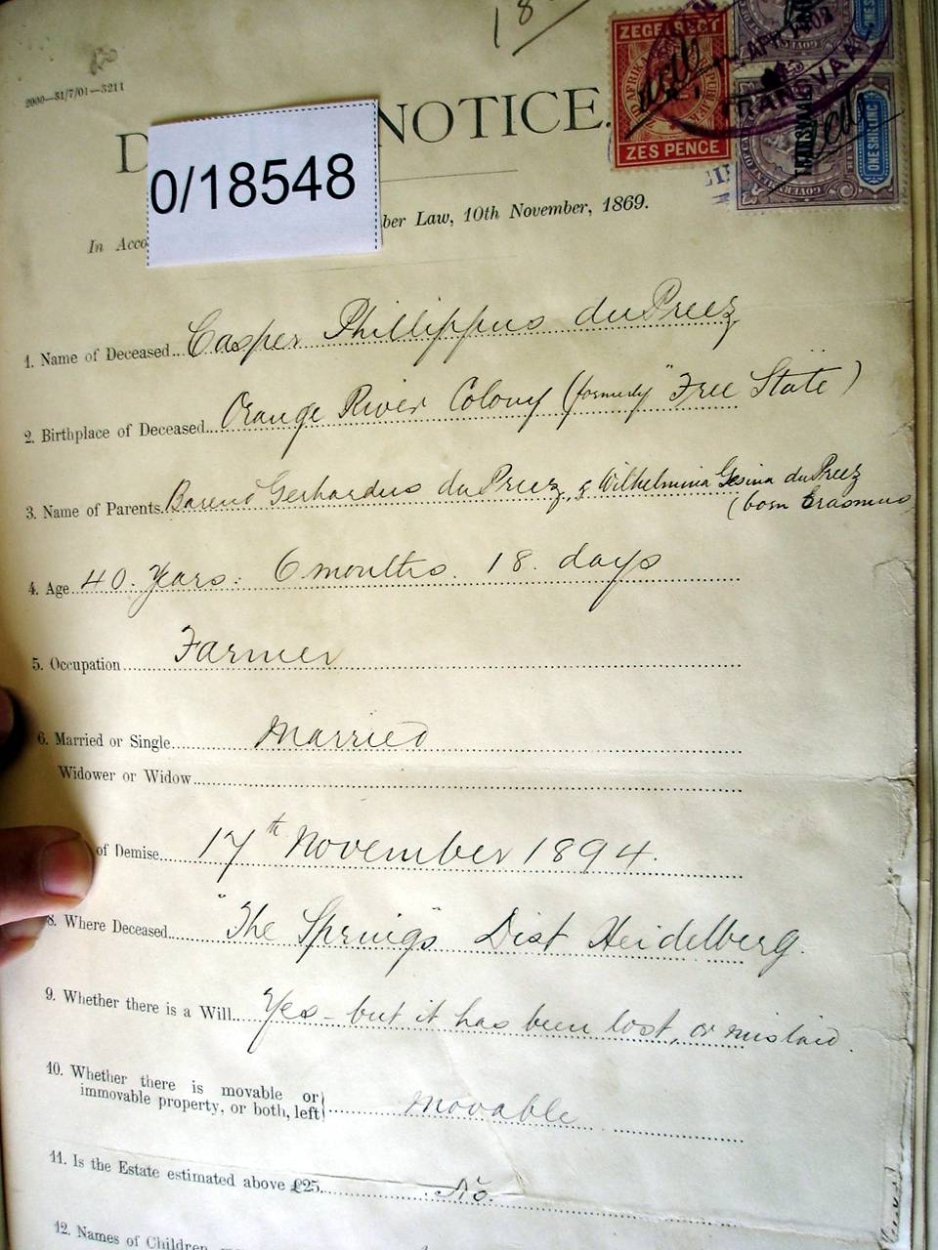 18
2000—31/7/01—3211
D NOTICE.
0/18548
ZEGELRECT
ZES PENCE
TRANSVAAL
ONE SHILLING
In Acco ber Law, 10th November, 1869.
1. Name of Deceased Casper Phillippus du Preez
2. Birthplace of Deceased Orange River Colony (formerly "Free State")
3. Name of Parents Barend Gerhardus du Preez, & Wilhelmina Gesina du Preez
(born Erasmus
4. Age 40. Years: 6 months. 18. days
5. Occupation Farmer
6. Married or Single Married
Widower or Widow
of Demise 17th November 1894.
8. Where Deceased "The Springs" Dist Heidelberg.
9. Whether there is a Will Yes – but it has been lost, or mislaid.
10. Whether there is movable or
immovable property, or both, left movable
11. Is the Estate estimated above £25 No.
12. Names of Children